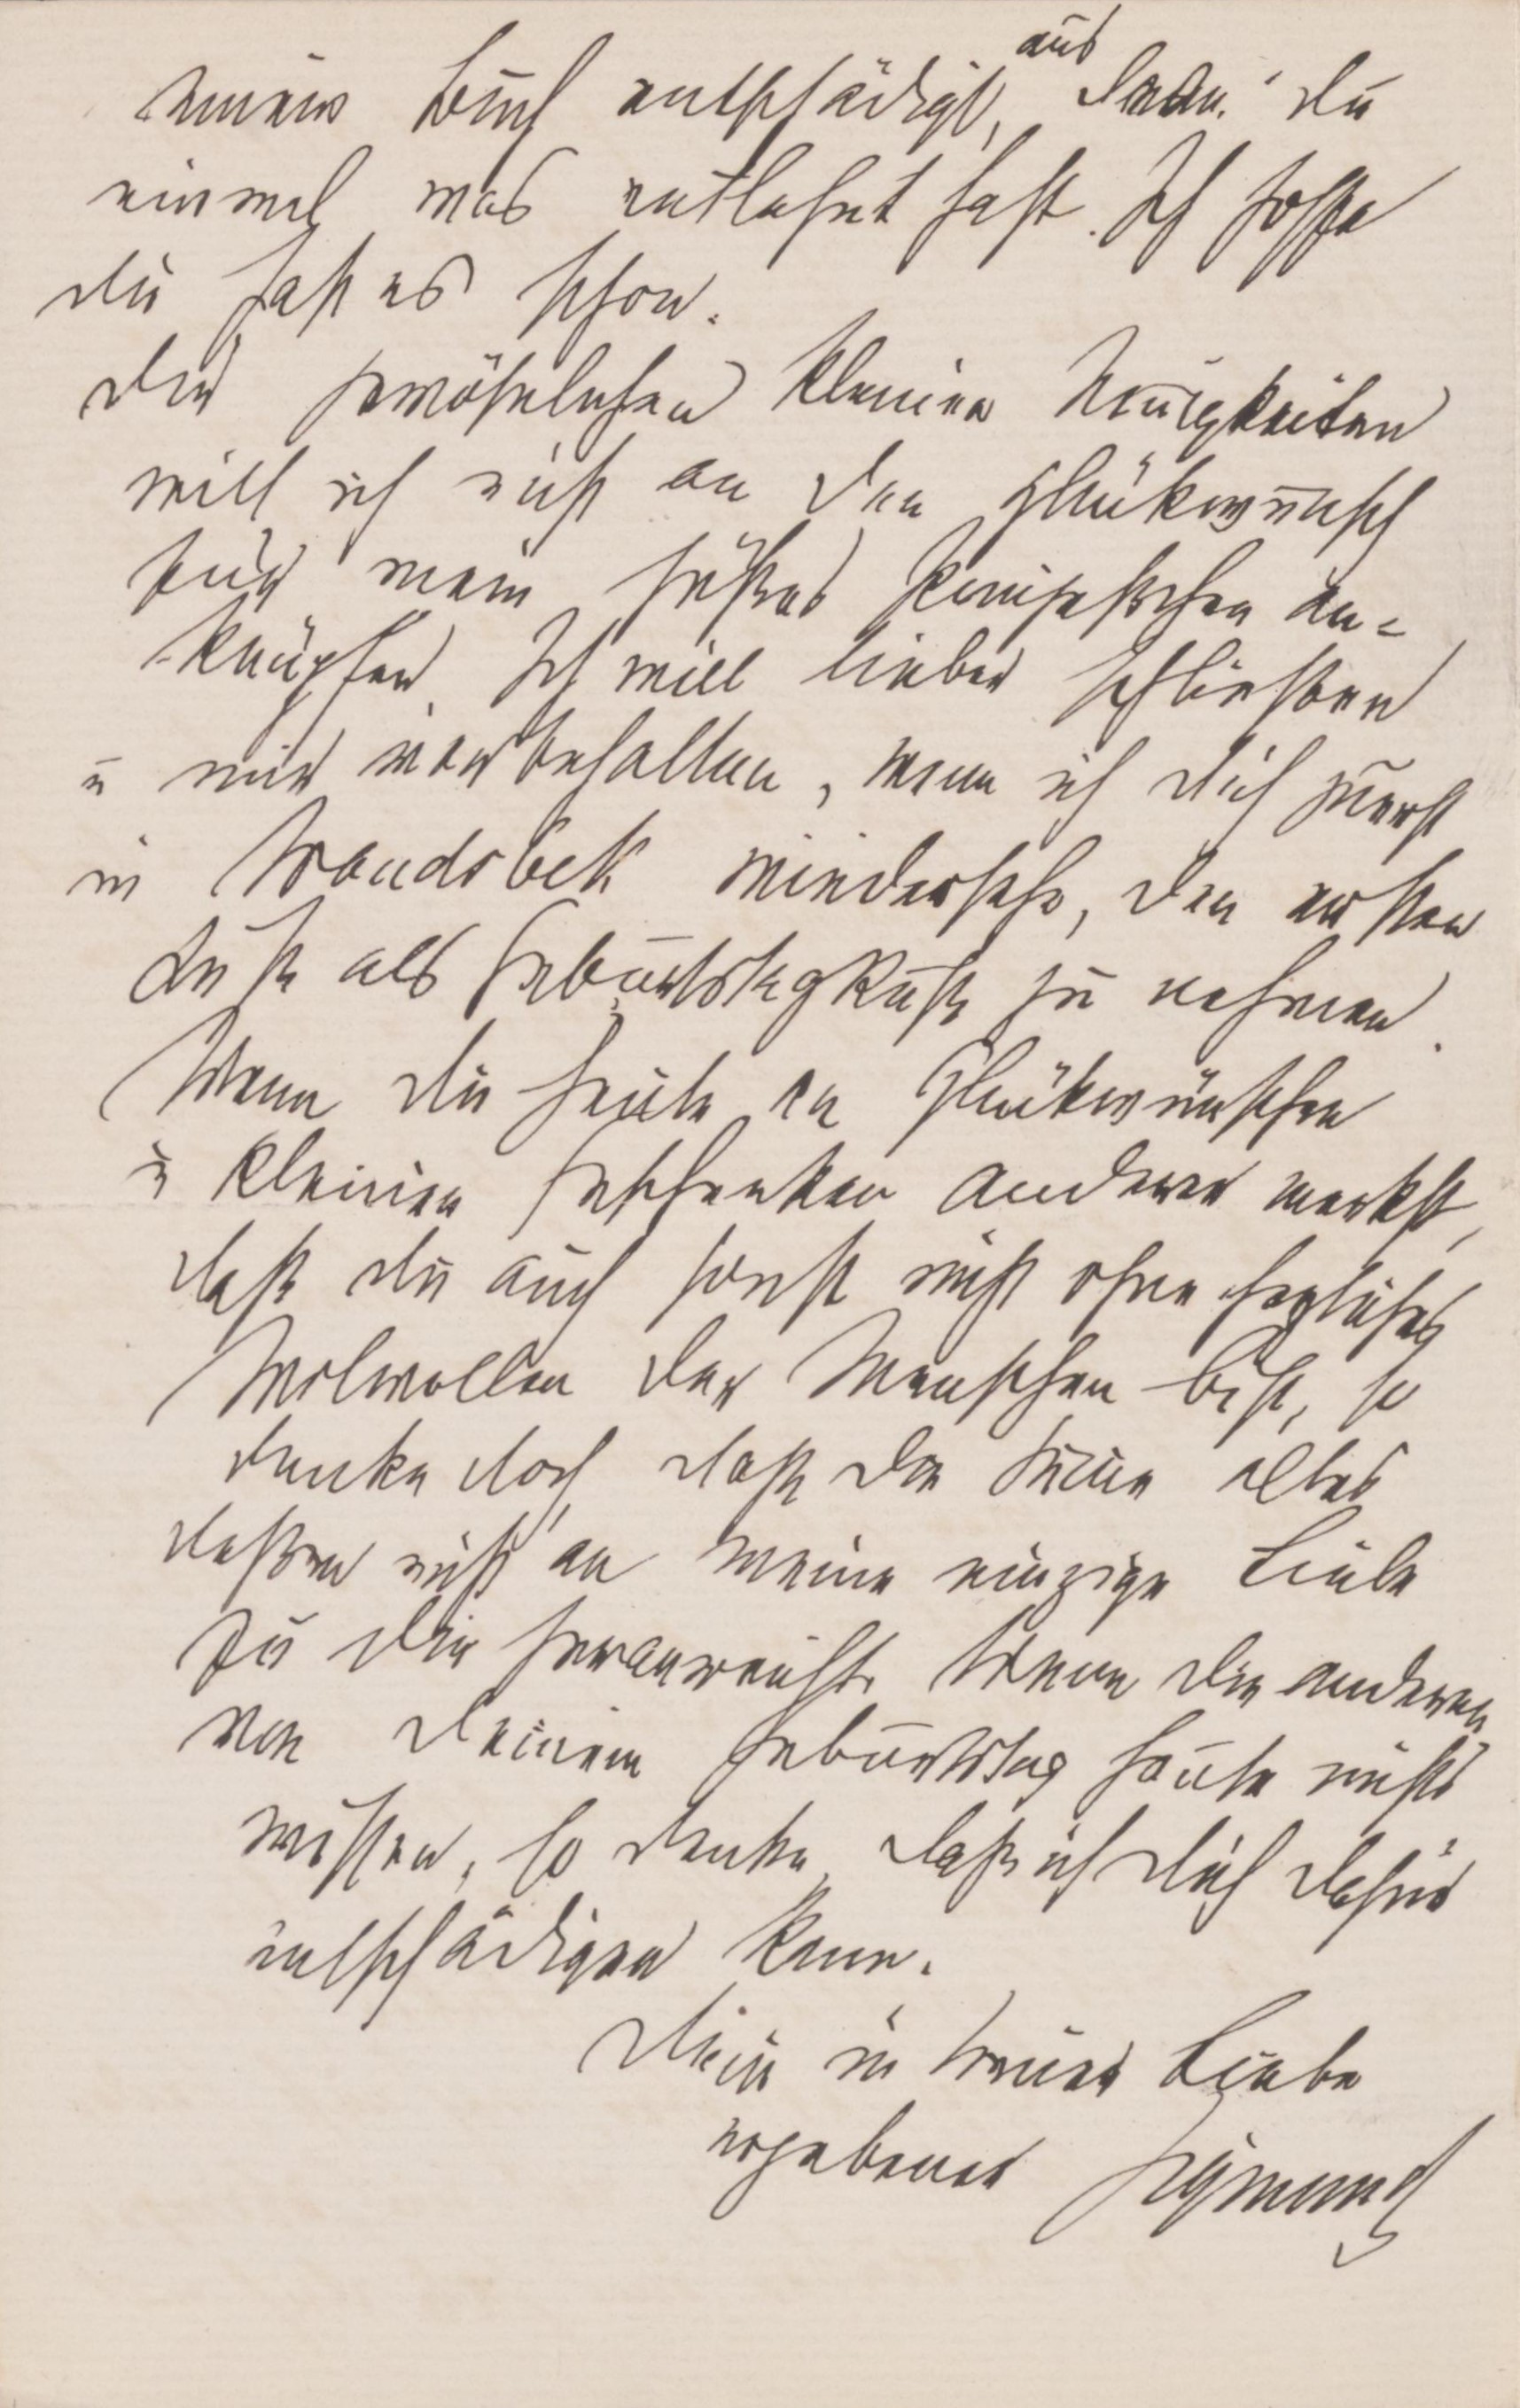 neues Buch entschädigt, aus dem du
einmal was entlehnt hast. Ich hoffe
du hast es schon.
Die gewöhnlichen kleinen Neuigkeiten
will ich nicht an den Glükwunsch
für mein süßes Prinzeßchen an=
knüpfen. Ich will lieber schließen
u mir vorbehalten, wenn ich dich zuerst
in Wandsbek wiedersehe, den ersten
Kuß als Geburtstagkuß zu nehmen.
Wenn du heute an Glükwünschen
u kleinen Geschenken anderer merkst,
daß du auch sonst nicht ohne herzliches
Wolwollen der Menschen bist, so
denke doch, daß die Summe alles
deßen nicht an meine einzige Liebe
zu dir heranreicht. Wenn die anderen
von deinem Geburtstag heute nichts
wissen, so denke, daß ich dich dafür
entschädigen kann.
Dein in treuer Liebe
ergebener Sigmund